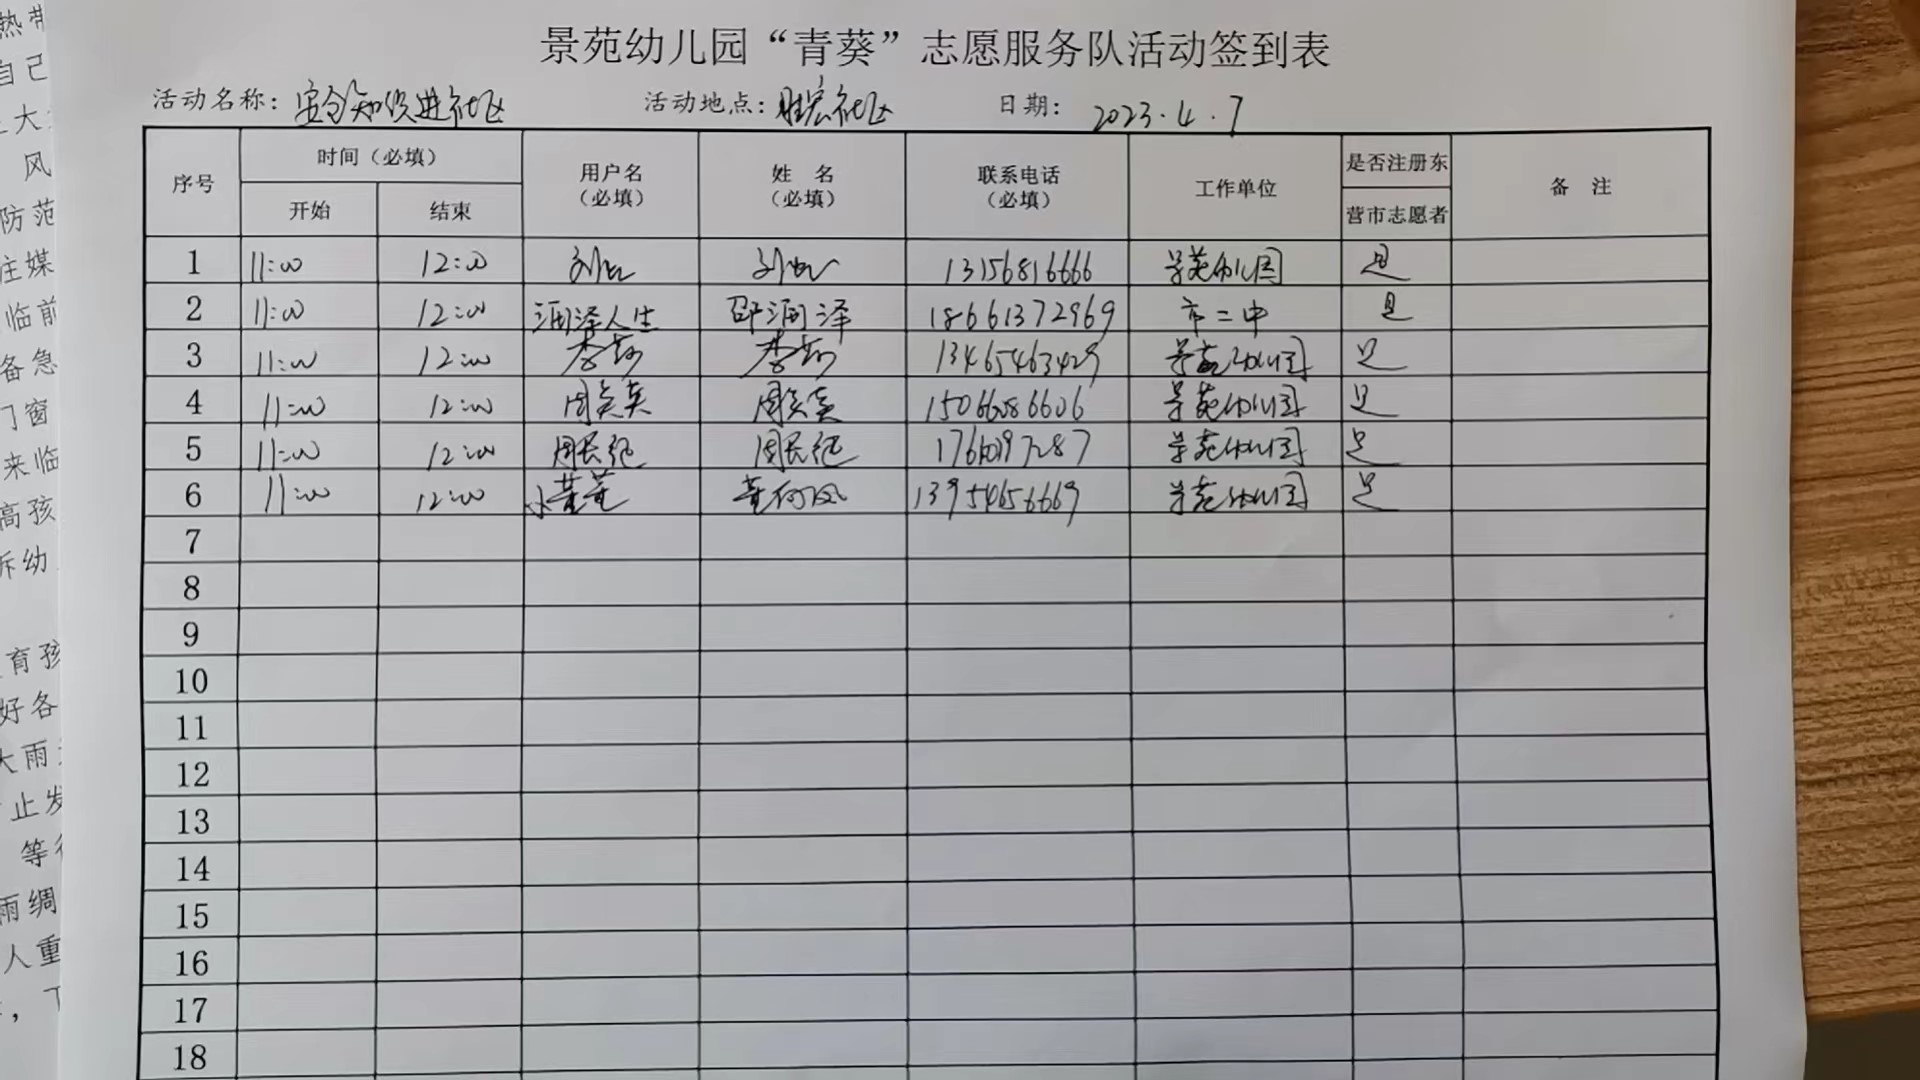 景苑幼儿园“青葵”志愿服务队活动签到表
活动名称：安全知识进社区 活动地点：胜宏社区 日期：2023.4.7
序号 时间（必填） 用户名（必填） 姓名（必填） 联系电话（必填） 工作单位 是否注册东营市志愿者 备注
开始 结束
1 11:00 12:00 刘 刘 13156816666 景苑幼儿园 是
2 11:00 12:00 润泽人生 邵润泽 18661372969 市二中 是
3 11:00 12:00 李 李 13465463429 景苑幼儿园 是
4 11:00 12:00 周 周 景苑幼儿园 是
5 11:00 12:00 周民纪 周民纪 景苑幼儿园 是
6 11:00 12:00 小董董 董 13954656669 景苑幼儿园 是
7
8
9
10
11
12
13
14
15
16
17
18
热带
自己
大
风
防范
注媒
临前
备急
门窗
来临
高孩
诉幼
育孩
好各
大雨
止发
等
雨绸
人重